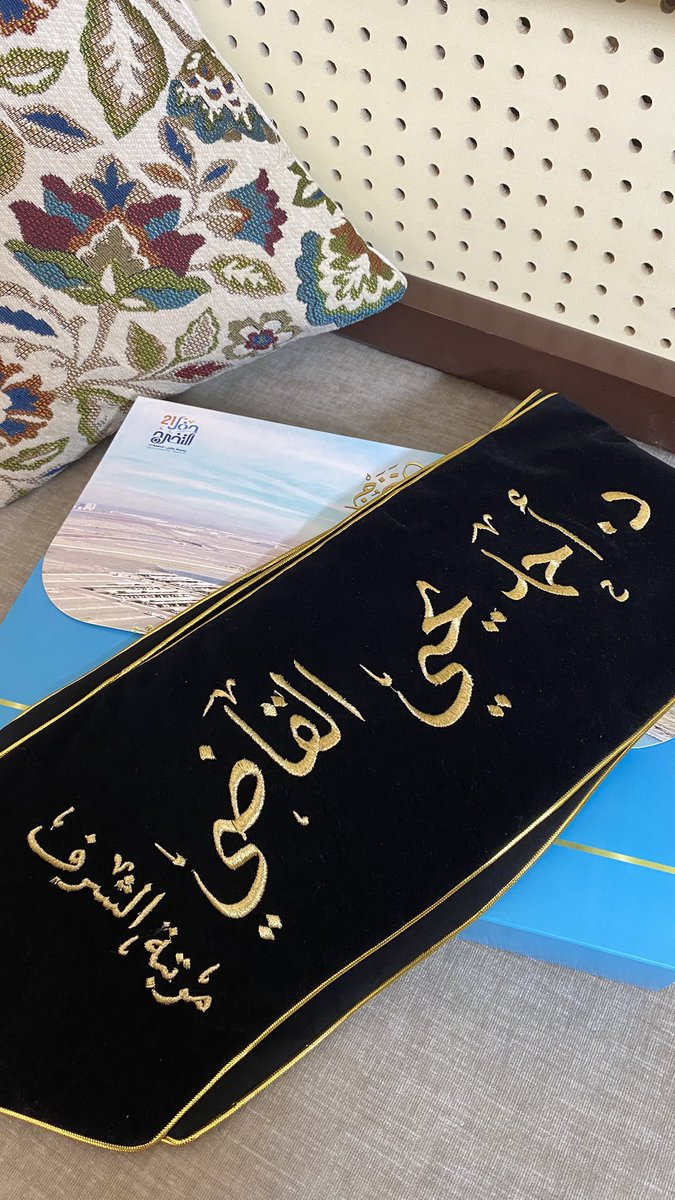 حفل 21
التخرج
د. أحمد يحيى القاضي
مرتبة الشرف